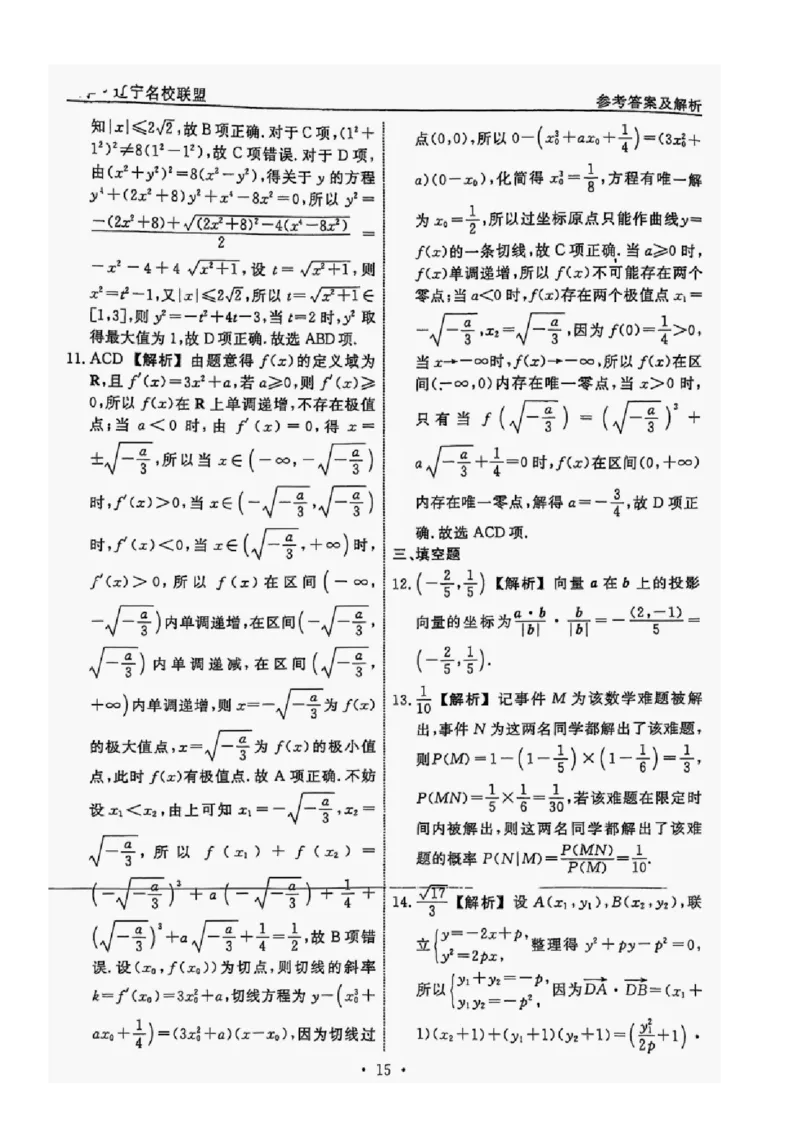 辽宁名校联盟
参考答案及解析
知|x|≤2√2,故B项正确.对于C项,(1²+
1²)²≠8(1²-1²),故C项错误.对于D项,
由(x²+y²)²=8(x²-y²),得关于y的方程
y⁴+(2x²+8)y²+x⁴-8x²=0,所以 y²=
\frac{-(2x²+8)+\sqrt{(2x²+8)²-4(x⁴-8x²)}}{2} =
-x²-4+4\sqrt{x²+1},设 t=\sqrt{x²+1},则
x²=t²-1,又|x|≤2√2,所以t=\sqrt{x²+1}∈
[1,3],则y²=-t²+4t-3,当t=2时,y²取
得最大值为1,故D项正确.故选ABD项.
11. ACD 【解析】由题意得 f(x)的定义域为
R,且f′(x)=3x²+a,若a≥0,则 f′(x)≥
0,所以f(x)在R上单调递增,不存在极值
点;当 a<0 时,由 f′(x)=0,得 x=
±\sqrt{-\frac{a}{3}},所以当x∈(-∞,-\sqrt{-\frac{a}{3}})
时,f′(x)>0,当x∈(-\sqrt{-\frac{a}{3}},\sqrt{-\frac{a}{3}})
时,f′(x)<0,当x∈(\sqrt{-\frac{a}{3}},+∞)时,
f′(x)>0,所以 f(x)在区间(-∞,
-\sqrt{-\frac{a}{3}})内单调递增,在区间(-\sqrt{-\frac{a}{3}},
\sqrt{-\frac{a}{3}})内单调递减,在区间(\sqrt{-\frac{a}{3}},
+∞)内单调递增,则x=-\sqrt{-\frac{a}{3}}为f(x)
的极大值点,x=\sqrt{-\frac{a}{3}}为 f(x)的极小值
点,此时 f(x)有极值点.故A项正确.不妨
设x₁<x₂,由上可知x₁=-\sqrt{-\frac{a}{3}},x₂=
\sqrt{-\frac{a}{3}},所以 f(x₁)+f(x₂)=
(-\sqrt{-\frac{a}{3}})³+a(-\sqrt{-\frac{a}{3}})+\frac{1}{4}+
(\sqrt{-\frac{a}{3}})³+a\sqrt{-\frac{a}{3}}+\frac{1}{4}=\frac{1}{2},故B项错
误.设(x₀,f(x₀))为切点,则切线的斜率
k=f′(x₀)=3x₀²+a,切线方程为y-(x₀³+
ax₀+\frac{1}{4})=(3x₀²+a)(x-x₀),因为切线过
点(0,0),所以0-(x₀³+ax₀+\frac{1}{4})=(3x₀²+
a)(0-x₀),化简得x₀³=\frac{1}{8},方程有唯一解
为x₀=\frac{1}{2},所以过坐标原点只能作曲线y=
f(x)的一条切线,故C项正确.当a≥0时,
f(x)单调递增,所以f(x)不可能存在两个
零点;当a<0时,f(x)存在两个极值点x₁=
-\sqrt{-\frac{a}{3}},x₂=\sqrt{-\frac{a}{3}},因为f(0)=\frac{1}{4}>0,
当x→-∞时,f(x)→-∞,所以f(x)在区
间(-∞,0)内存在唯一零点,当 x>0 时,
只有当 f(\sqrt{-\frac{a}{3}})=(\sqrt{-\frac{a}{3}})³+
a\sqrt{-\frac{a}{3}}+\frac{1}{4}=0时,f(x)在区间(0,+∞)
内存在唯一零点,解得a=-\frac{3}{4},故D项正
确.故选ACD项.
三、填空题
12. (-\frac{2}{5},\frac{1}{5}) 【解析】向量a在b上的投影
向量的坐标为\frac{a·b}{|b|}·\frac{b}{|b|}=-\frac{(2,-1)}{5}=
(-\frac{2}{5},\frac{1}{5}).
13. \frac{1}{10} 【解析】记事件M为该数学难题被解
出,事件N为这两名同学都解出了该难题,
则P(M)=1-(1-\frac{1}{5})×(1-\frac{1}{6})=\frac{1}{3},
P(MN)=\frac{1}{5}×\frac{1}{6}=\frac{1}{30},若该难题在限定时
间内被解出,则这两名同学都解出了该难
题的概率P(N|M)=\frac{P(MN)}{P(M)}=\frac{1}{10}.
14. \frac{\sqrt{17}}{3} 【解析】设A(x₁,y₁),B(x₂,y₂),联
立{y=-2x+p, y²=2px,整理得 y²+py-p²=0,
所以{y₁+y₂=-p, y₁y₂=-p²,因为\overrightarrow{DA}·\overrightarrow{DB}=(x₁+
1)(x₂+1)+(y₁+1)(y₂+1)=(\frac{y₁²}{2p}+1)·
· 15 ·